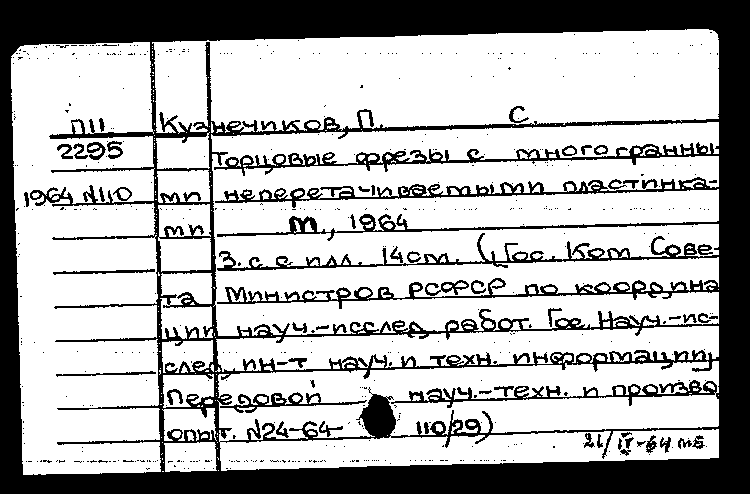 П11 Кузнечиков, П. С.
2295 Торцовые фрезы с многогранны-
1964 N110 ми неперетачиваемыми пластинка-
ми М., 1964
3. с с илл. 14см. (Гос. Ком Сове-
та Министров РСФСР по координа
ции науч.-исслед работ. Гос. Науч.-ис-
след, ин-т науч. и техн. информации,
Передовой науч.-техн. и произво
опыт. N24-64- 110/29)
21/IV-64